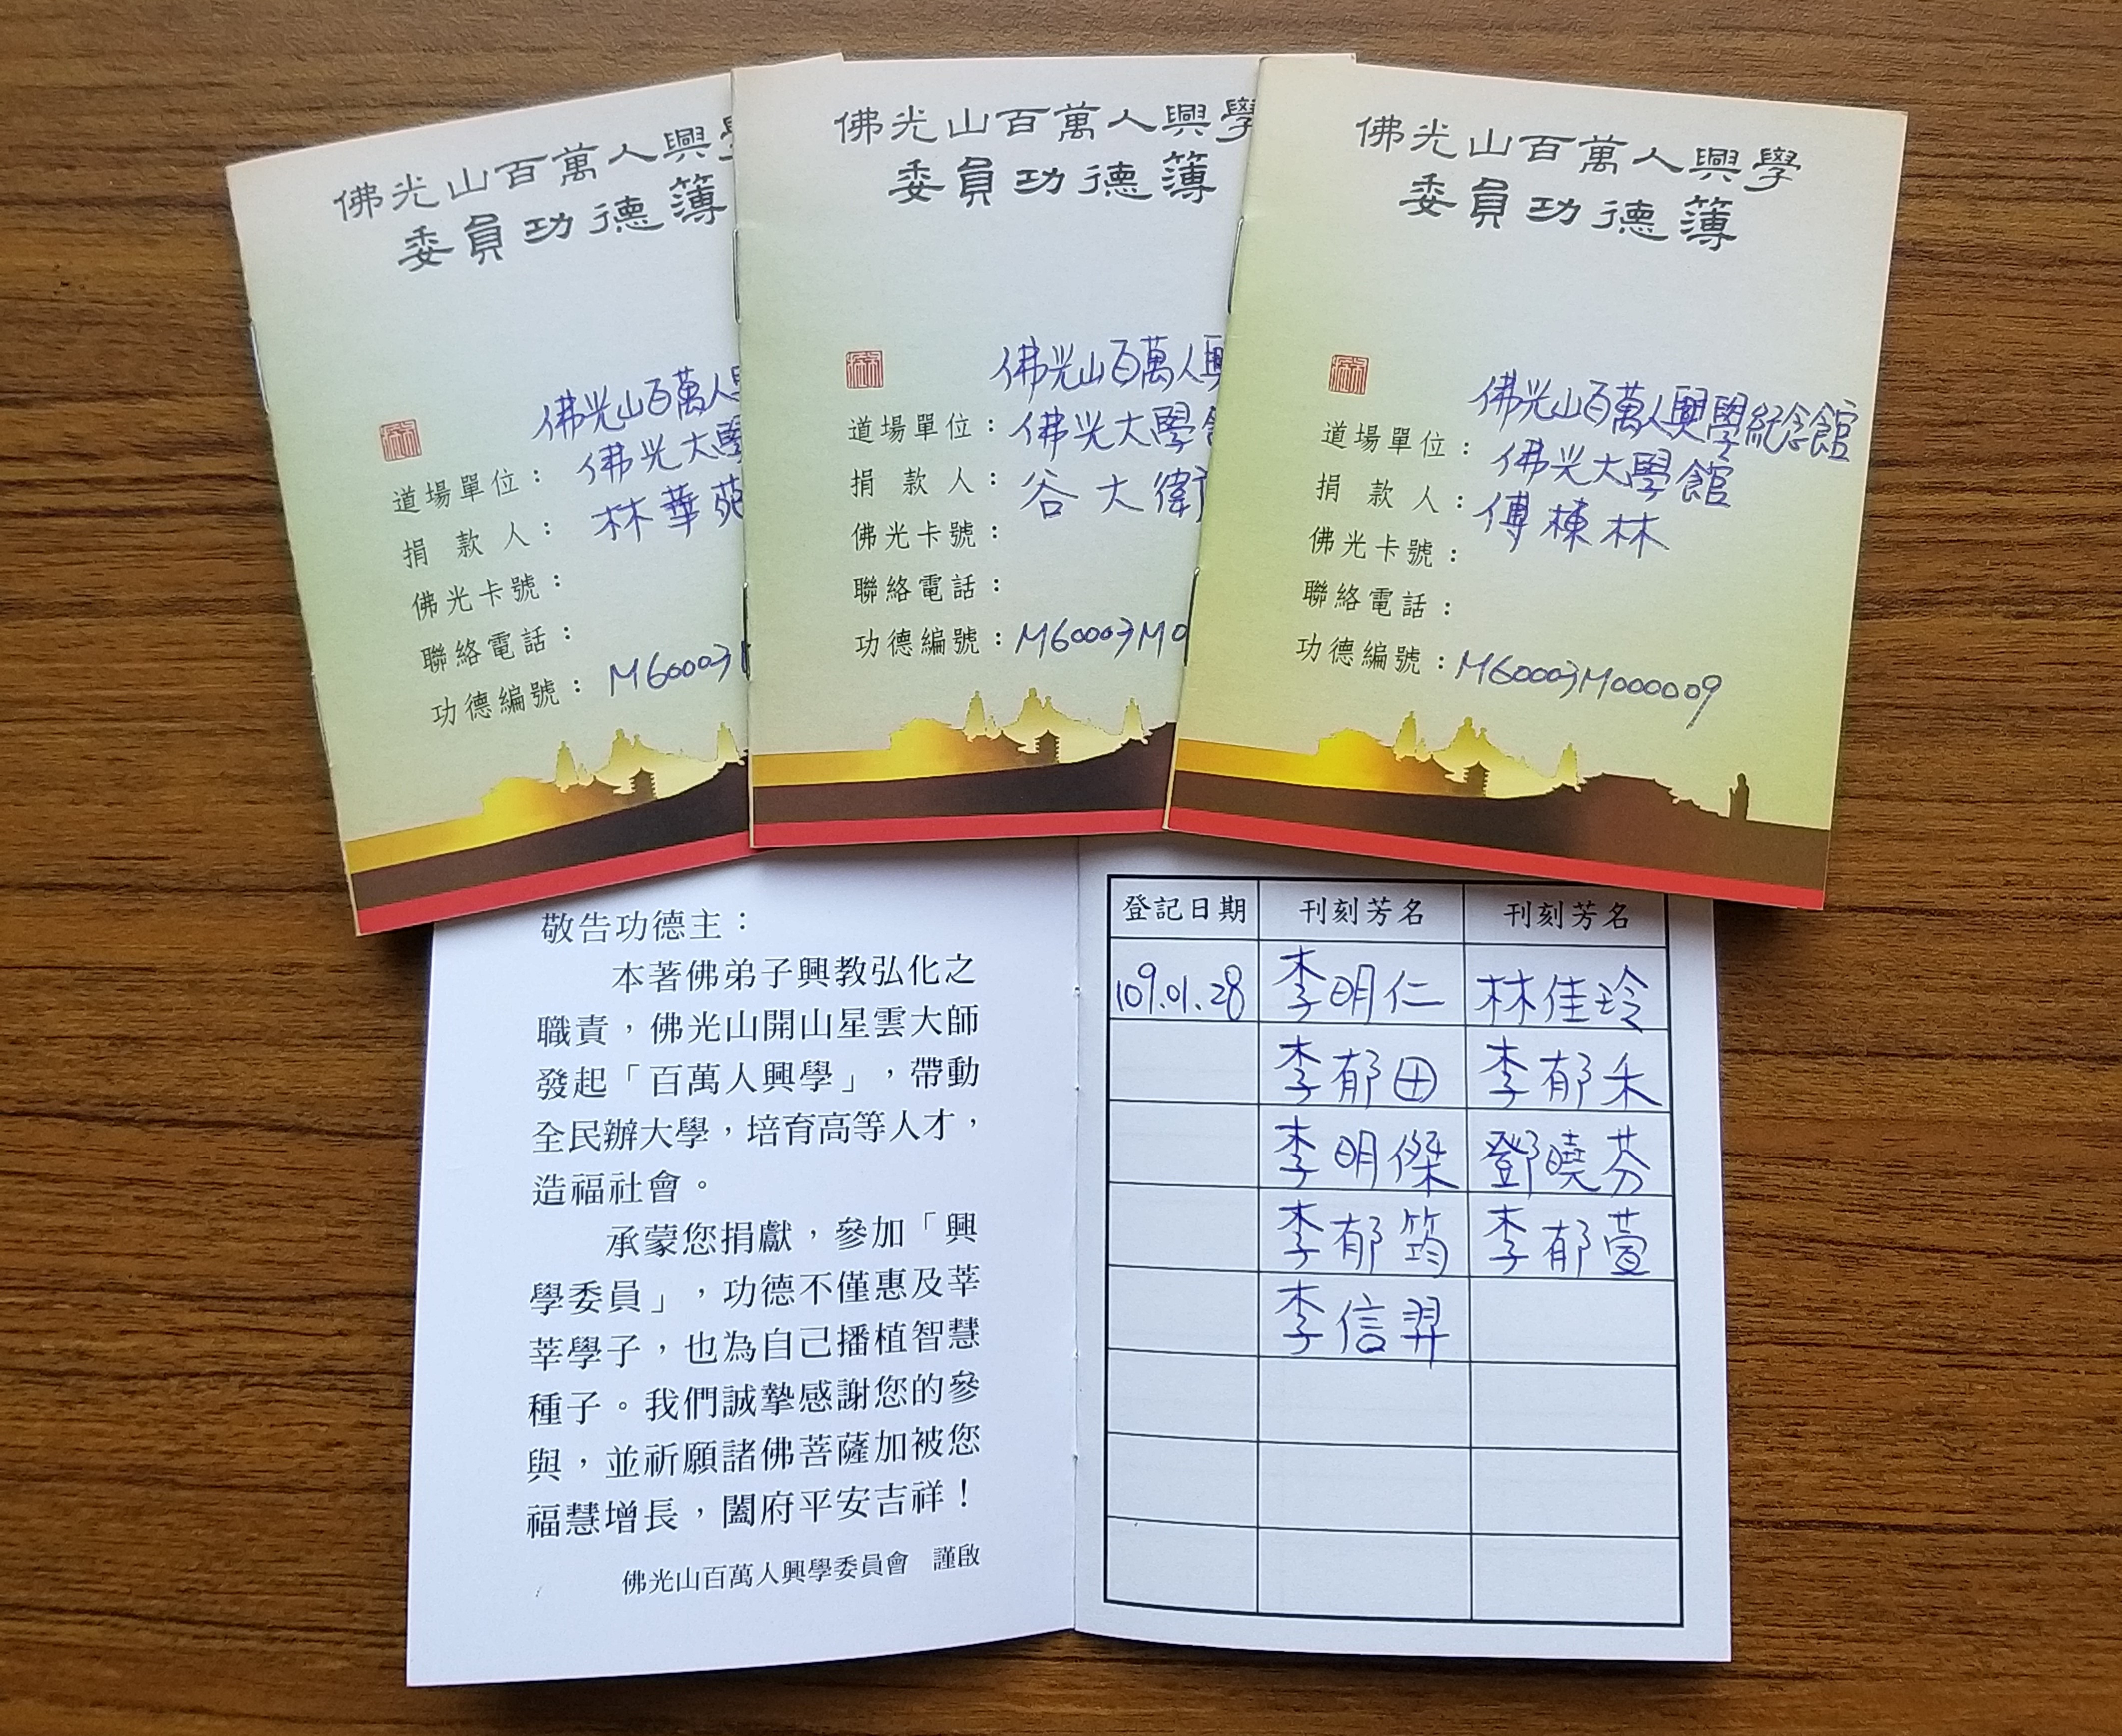 佛光山百萬人興學
委員功德簿
佛光山百萬人
道場單位：佛光大學
捐款人：林華苑
佛光卡號：
聯絡電話：
功德編號：M60003
佛光山百萬人興學
委員功德簿
佛光山百萬人興
道場單位：佛光大學
捐款人：谷大衛
佛光卡號：
聯絡電話：
功德編號：M60003M0
佛光山百萬人興學
委員功德簿
佛光山百萬人興學紀念館
道場單位：佛光大學館
捐款人：傅棟林
佛光卡號：
聯絡電話：
功德編號：M60003M000009
敬告功德主：
本著佛弟子興教弘化之
職責，佛光山開山星雲大師
發起「百萬人興學」，帶動
全民辦大學，培育高等人才，
造福社會。
承蒙您捐獻，參加「興
學委員」，功德不僅惠及莘
莘學子，也為自己播植智慧
種子。我們誠摯感謝您的參
與，並祈願諸佛菩薩加被您
福慧增長，闔府平安吉祥！
佛光山百萬人興學委員會 謹啟
登記日期 刊刻芳名 刊刻芳名
109.01.28 李明仁 林佳玲
李郁田 李郁禾
李明傑 鄧曉芬
李郁筠 李郁萱
李信羿